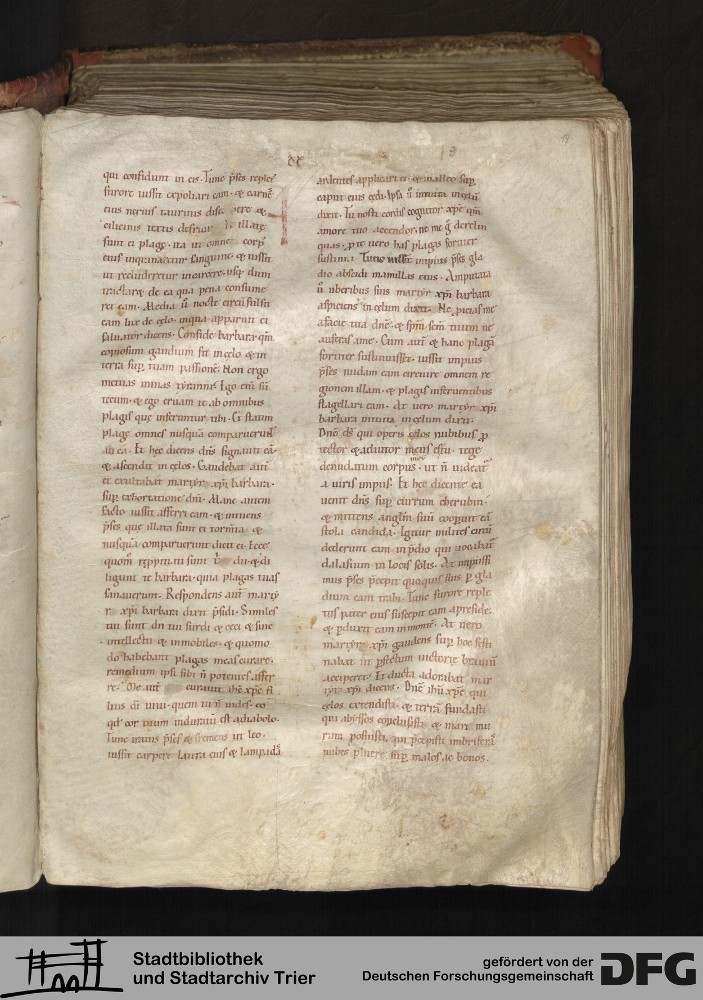 xx
19
qui confidunt in eis. Tunc p̄ses replet᷎
furore iussit expoliari eam. & carnē
eius neruis taurinis disc pere &
cilicinis textis defricari illatę
sunt ei plagę. ita ut omne corp᷎
eius inquinaretur sanguine. & iussit
ut recluderetur in carcere. usq; dum
tractaret de ea qua pena consume
ret eam. Media u̅ nocte circūfulsit
eam lux de cęlo. in qua apparuit ei
saluator dicens. Confide barbara. qm̄
copiosum gaudium fit in cęlo & in
terra sup tuam passionē. Non ergo
metuas minas tyranni. Ego eni sū
tecum. & ego eruam te ab omnibus
plagis quę inferuntur tibi. Et statim
plagę omnes nusquā comparuerunt
ab ea. Et hęc dicens dn̄s signauit eā
& ascendit in cęlos. Gaudebat aut̄
et exultabat martyr xp̄i barbara.
sup exhortatione dn̄i. Mane autem
facto iussit afferri eam. & intuens
p̄ses quę illata sunt ei torm̄ta &
nusquā comparuerunt dicit ei. Ecce
quom̄ ti sunt t dii. & di
ligunt te barbara. quia plagas tuas
sanauerunt. Respondens aut̄ marty
r xp̄i barbara dixit p̄sidi. Similes
tui sunt dii tui surdi & cęci & sine
intellectu & inmobiles. & quomo
do habebant plagas meas curare.
remedium ipsi sibi n̄ potentes affer
re. Me aut̄ curauit ihc̄ xp̄c fi
lius dī uiui. quem tu n̄ uides. eo
qd̄ cor tuum induratū est a diabolo.
Tunc iratus p̄ses & fremens ut leo.
iussit carpere latera eius & lampadā
ardentes applicari ei. & malleo sup
caput eius cędi. Ipsa u̅ intuita in cęlū
dixit. Tu nosti cordis cogitator xp̄e qm̄
amore tuo accendor. ne me g̊ derelin
quas. p te uero has plagas fortiter
sustinui. Tunc iussit impius p̄ses gla
dio abscidi mamillas eius. Amputatis
u̅ uberibus suis martyr xp̄i barbara
aspiciens in cęlum dixit. Ne picias me
a facie tua dn̄e. & sp̄m scm̄ tuum ne
auferas a me. Cum aut̄ & hanc plagā
fortiter sustinuisset. iussit impius
p̄ses nudam eam circuire omnem re
gionem illam. & plagis inseruentibus
flagellari eam. At uero martyr xp̄i
barbara intuita in cęlum dixit.
Dn̄e ds̄ qui operis cęlos nubibus. p
tector & adiutor meus esto. tege
denudatum corpus meū. ut n̄ uideat᷎
a uiris impiis. Et hęc dicente ea
uenit dn̄s sup currum cherubin.
& mittens anglm̄ suū cooperuit eā
stola candida. Igitur milites circū
dederunt eam in p̄dio qui uocabat᷎
dalasium in locis solis. At impiissi
mus p̄ses p̄cepit quoquis suis p gla
dium eam trahi. Tunc furore reple
tus pater eius suscepit eam a p̄side.
& pduxit eam in montē. At uero
martyr xp̄i gaudens sup hoc festi
nabat ut pfectum uictorię brauiū
acciperet. Et ducta adorabat mar
tyr xp̄i dicens. Dn̄e ihū xp̄e qui
cęlos extendisti. & terrā fundasti
qui abyssos conclusisti. & mare mu
rum posuisti. qui p̄cepisti imbriferā
nubes pluere sup malos. ac bonos.
Stadtbibliothek
und Stadtarchiv Trier
gefördert von der
Deutschen Forschungsgemeinschaft
DFG